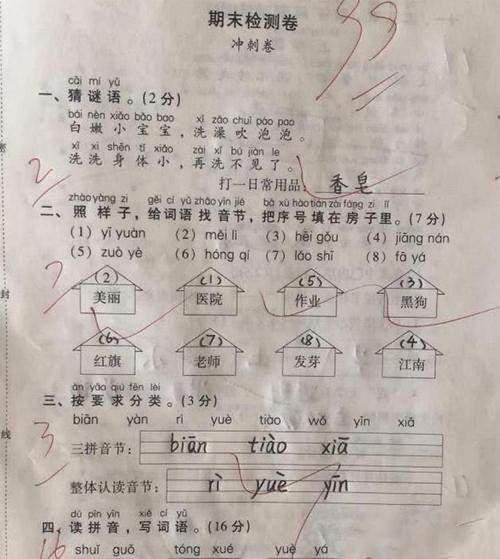 期末检测卷
99
冲刺卷
cāi mí yǔ
一、猜谜语。(2分)
bái nèn xiǎo bǎo bao xǐ zǎo chuī pào pao
白嫩小宝宝，洗澡吹泡泡。
xǐ xi shēn tǐ xiǎo zài xǐ bú jiàn le
洗洗身体小，再洗不见了。
2
打一日常用品：香皂
zhào yàng zi gěi cí yǔ zhǎo yīn jié bǎ xù hào tián zài fáng zi lǐ
二、照样子，给词语找音节，把序号填在房子里。(7分)
(1) yī yuàn (2) měi lì (3) hēi gǒu (4) jiāng nán
(5) zuò yè (6) hóng qí (7) lǎo shī (8) fā yá
7
(2) (1) (5) (3)
美丽 医院 作业 黑狗
(6) (7) (8) (4)
红旗 老师 发芽 江南
àn yāo qiú fēn lèi
三、按要求分类。(3分)
biān yàn rì yuè tiào wǒ yīn xiā
3
三拼音节：biān tiào xiā
整体认读音节：rì yuè yīn
dú pīn yīn xiě cí yǔ
四、读拼音，写词语。(16分)
16
shuǐ guǒ tóng xué yuè yá